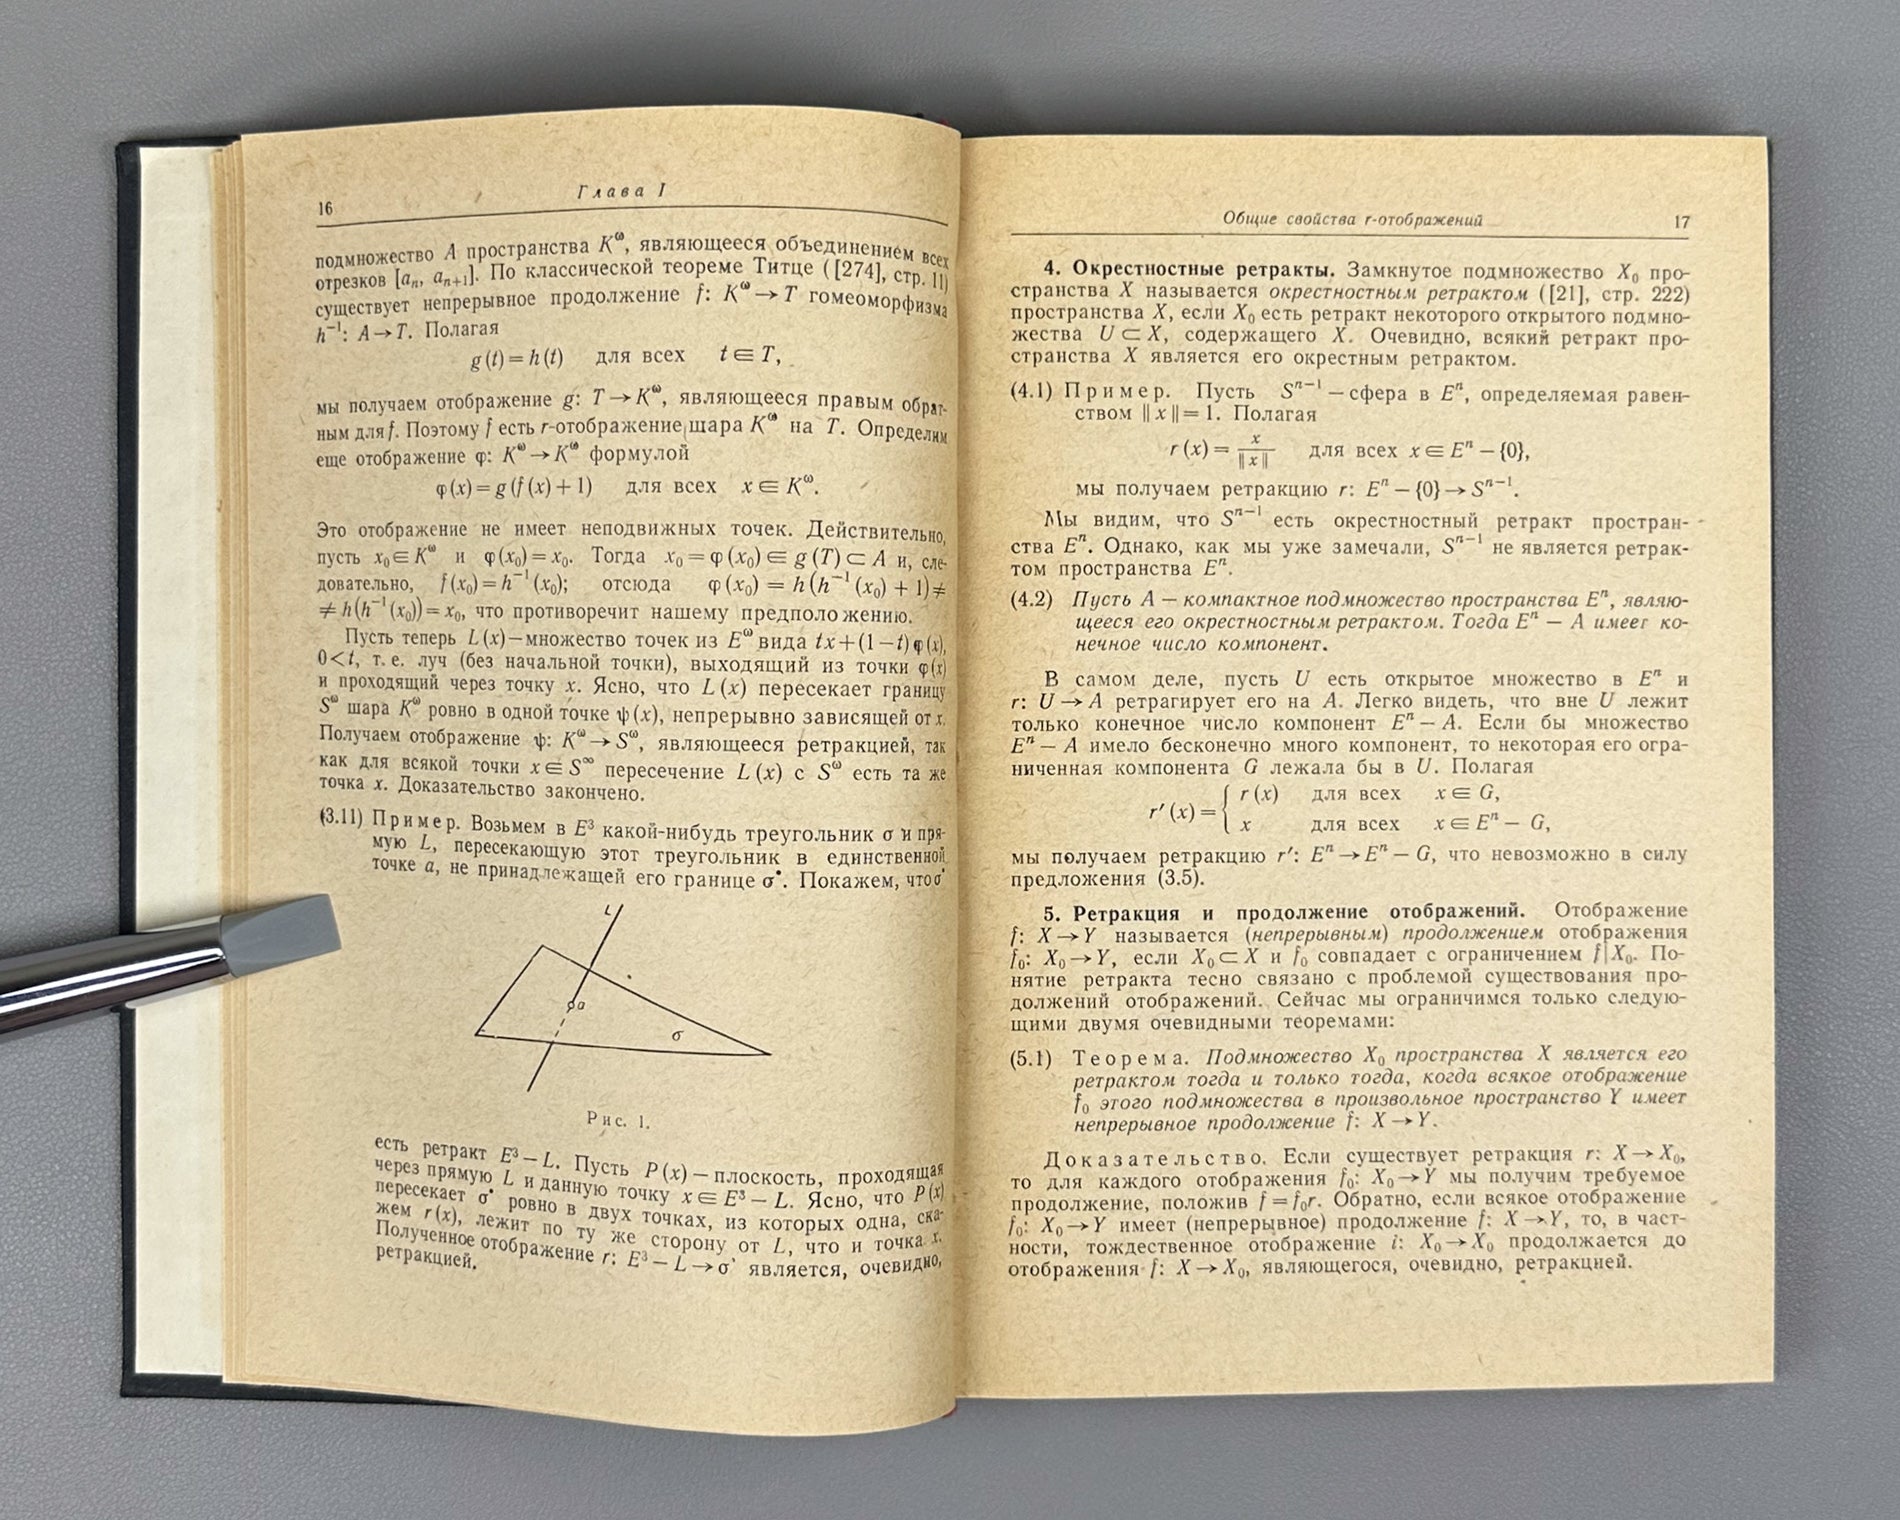 16
Глава I
подмножество A пространства K^ω, являющееся объединением всех
отрезков [aₙ, aₙ₊₁]. По классической теореме Титце ([274], стр. 11)
существует непрерывное продолжение f: K^ω → T гомеоморфизма
h⁻¹: A → T. Полагая
g(t) = h(t) для всех t ∈ T,
мы получаем отображение g: T → K^ω, являющееся правым обрат-
ным для f. Поэтому f есть r-отображение шара K^ω на T. Определим
еще отображение φ: K^ω → K^ω формулой
φ(x) = g(f(x) + 1) для всех x ∈ K^ω.
Это отображение не имеет неподвижных точек. Действительно,
пусть x₀ ∈ K^ω и φ(x₀) = x₀. Тогда x₀ = φ(x₀) ∈ g(T) ⊂ A и, сле-
довательно, f(x₀) = h⁻¹(x₀); отсюда φ(x₀) = h(h⁻¹(x₀) + 1) ≠
≠ h(h⁻¹(x₀)) = x₀, что противоречит нашему предположению.
Пусть теперь L(x) — множество точек из E^ω вида tx + (1 — t) φ(x),
0 < t, т. е. луч (без начальной точки), выходящий из точки φ(x)
и проходящий через точку x. Ясно, что L(x) пересекает границу
S^ω шара K^ω ровно в одной точке ψ(x), непрерывно зависящей от x.
Получаем отображение ψ: K^ω → S^ω, являющееся ретракцией, так
как для всякой точки x ∈ S^∞ пересечение L(x) с S^ω есть та же
точка x. Доказательство закончено.
(3.11) Пример. Возьмем в E³ какой-нибудь треугольник σ и пря-
мую L, пересекающую этот треугольник в единственной
точке a, не принадлежащей его границе σ˙. Покажем, что σ˙
L
a
σ
Рис. 1.
есть ретракт E³ — L. Пусть P(x) — плоскость, проходящая
через прямую L и данную точку x ∈ E³ — L. Ясно, что P(x)
пересекает σ˙ ровно в двух точках, из которых одна, ска-
жем r(x), лежит по ту же сторону от L, что и точка x.
Полученное отображение r: E³ — L → σ˙ является, очевидно,
ретракцией.
Общие свойства r-отображений
17
4. Окрестностные ретракты. Замкнутое подмножество X₀ про-
странства X называется окрестностным ретрактом ([21], стр. 222)
пространства X, если X₀ есть ретракт некоторого открытого подмно-
жества U ⊂ X, содержащего X. Очевидно, всякий ретракт про-
странства X является его окрестным ретрактом.
(4.1) Пример. Пусть Sⁿ⁻¹ — сфера в Eⁿ, определяемая равен-
ством ‖x‖ = 1. Полагая
r(x) = x/‖x‖ для всех x ∈ Eⁿ — {0},
мы получаем ретракцию r: Eⁿ — {0} → Sⁿ⁻¹.
Мы видим, что Sⁿ⁻¹ есть окрестностный ретракт простран-
ства Eⁿ. Однако, как мы уже замечали, Sⁿ⁻¹ не является ретрак-
том пространства Eⁿ.
(4.2) Пусть A — компактное подмножество пространства Eⁿ, являю-
щееся его окрестностным ретрактом. Тогда Eⁿ — A имеет ко-
нечное число компонент.
В самом деле, пусть U есть открытое множество в Eⁿ и
r: U → A ретрагирует его на A. Легко видеть, что вне U лежит
только конечное число компонент Eⁿ — A. Если бы множество
Eⁿ — A имело бесконечно много компонент, то некоторая его огра-
ниченная компонента G лежала бы в U. Полагая
r′(x) = { r(x) для всех x ∈ G,
x для всех x ∈ Eⁿ — G,
мы получаем ретракцию r′: Eⁿ → Eⁿ — G, что невозможно в силу
предложения (3.5).
5. Ретракция и продолжение отображений. Отображение
f: X → Y называется (непрерывным) продолжением отображения
f₀: X₀ → Y, если X₀ ⊂ X и f₀ совпадает с ограничением f|X₀. По-
нятие ретракта тесно связано с проблемой существования про-
должений отображений. Сейчас мы ограничимся только следую-
щими двумя очевидными теоремами:
(5.1) Теорема. Подмножество X₀ пространства X является его
ретрактом тогда и только тогда, когда всякое отображение
f₀ этого подмножества в произвольное пространство Y имеет
непрерывное продолжение f: X → Y.
Доказательство. Если существует ретракция r: X → X₀,
то для каждого отображения f₀: X₀ → Y мы получим требуемое
продолжение, положив f = f₀r. Обратно, если всякое отображение
f₀: X₀ → Y имеет (непрерывное) продолжение f: X → Y, то, в част-
ности, тождественное отображение i: X₀ → X₀ продолжается до
отображения f: X → X₀, являющегося, очевидно, ретракцией.